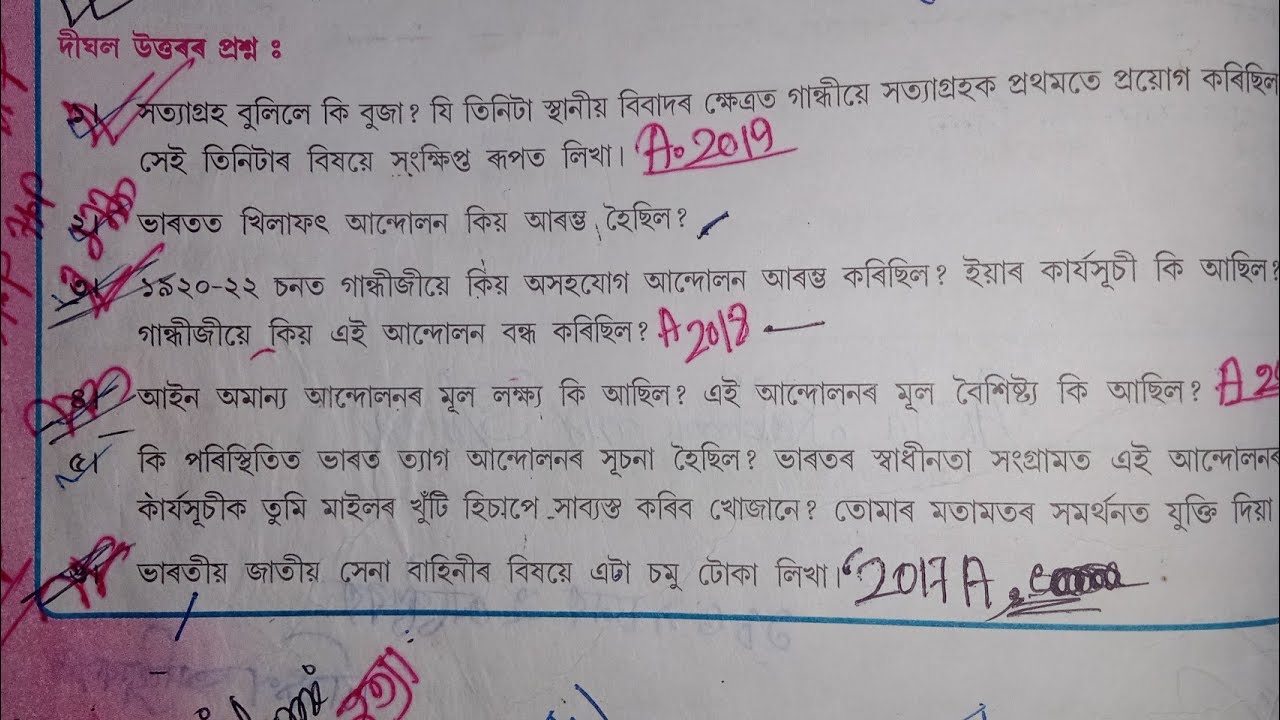 দীঘল উত্তৰৰ প্ৰশ্ন :
১। সত্যাগ্ৰহ বুলিলে কি বুজা? যি তিনিটা স্থানীয় বিবাদৰ ক্ষেত্ৰত গান্ধীয়ে সত্যাগ্ৰহক প্ৰথমতে প্ৰয়োগ কৰিছিল
সেই তিনিটাৰ বিষয়ে সংক্ষিপ্ত ৰূপত লিখা। A. 2019
২। ভাৰতত খিলাফৎ আন্দোলন কিয় আৰম্ভ হৈছিল?
৩। ১৯২০-২২ চনত গান্ধীজীয়ে কিয় অসহযোগ আন্দোলন আৰম্ভ কৰিছিল? ইয়াৰ কাৰ্যসূচী কি আছিল?
গান্ধীজীয়ে কিয় এই আন্দোলন বন্ধ কৰিছিল? A 2018
৪। আইন অমান্য আন্দোলনৰ মূল লক্ষ্য কি আছিল? এই আন্দোলনৰ মূল বৈশিষ্ট্য কি আছিল? A
৫। কি পৰিস্থিতিত ভাৰত ত্যাগ আন্দোলনৰ সূচনা হৈছিল? ভাৰতৰ স্বাধীনতা সংগ্ৰামত এই আন্দোলনৰ
কাৰ্যসূচীক তুমি মাইলৰ খুঁটি হিচাপে সাব্যস্ত কৰিব খোজানে? তোমাৰ মতামতৰ সমৰ্থনত যুক্তি দিয়া
ভাৰতীয় জাতীয় সেনা বাহিনীৰ বিষয়ে এটা চমু টোকা লিখা। 2017 A